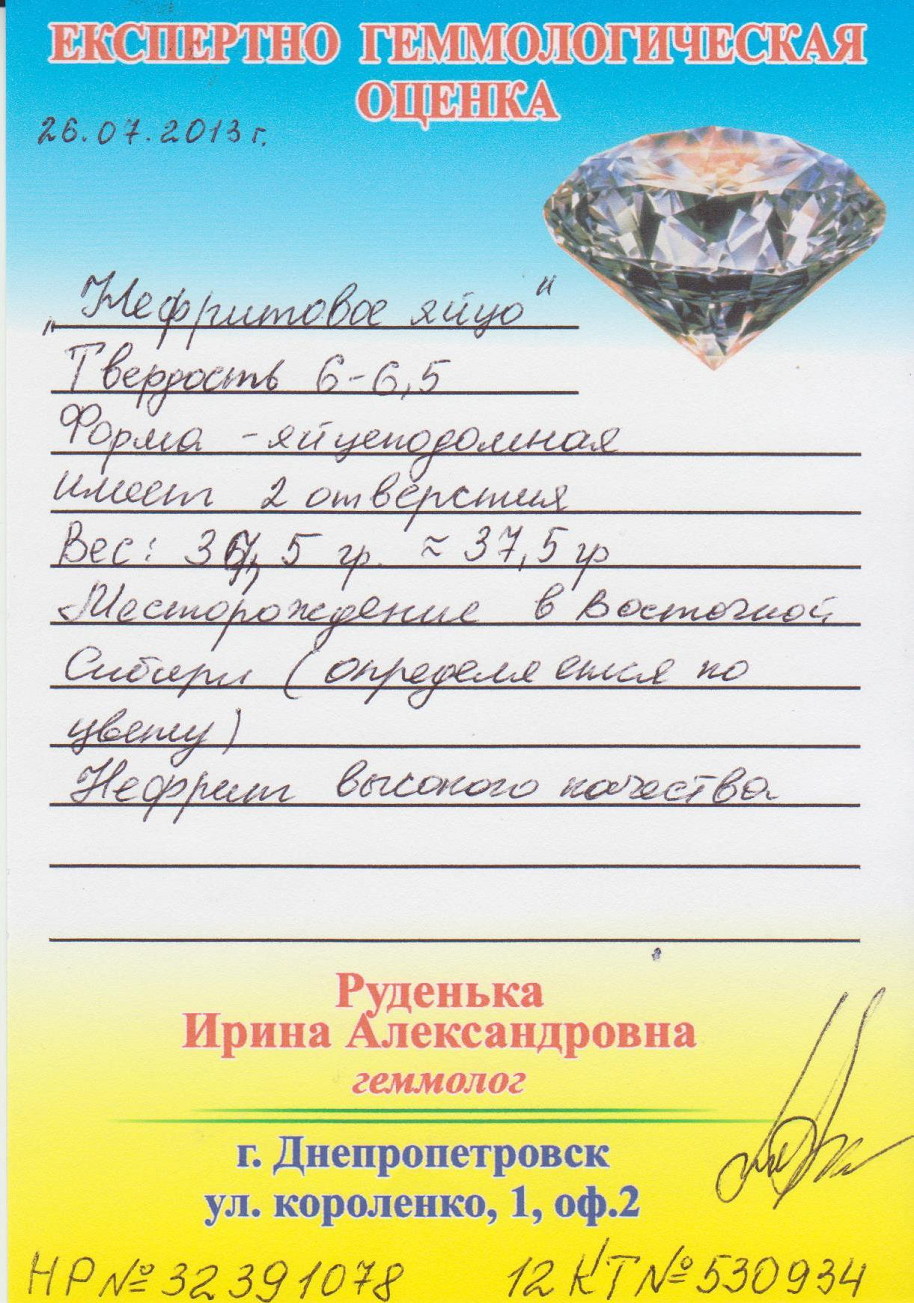 ЕКСПЕРТНО ГЕММОЛОГИЧЕСКАЯ
ОЦЕНКА
26.07.2013 г.
„Нефритовое яйцо“
Твердость 6-6,5
Форма - яйцеподомная
имеет 2 отверстия
Вес: 37,5 гр. ≈ 37,5 гр
Месторождение в Восточной
Сибири (определяется по
цвету)
Нефрит высокого качества
Руденька
Ирина Александровна
геммолог
г. Днепропетровск
ул. короленко, 1, оф.2
НР № 32391078 12 КТ № 530934